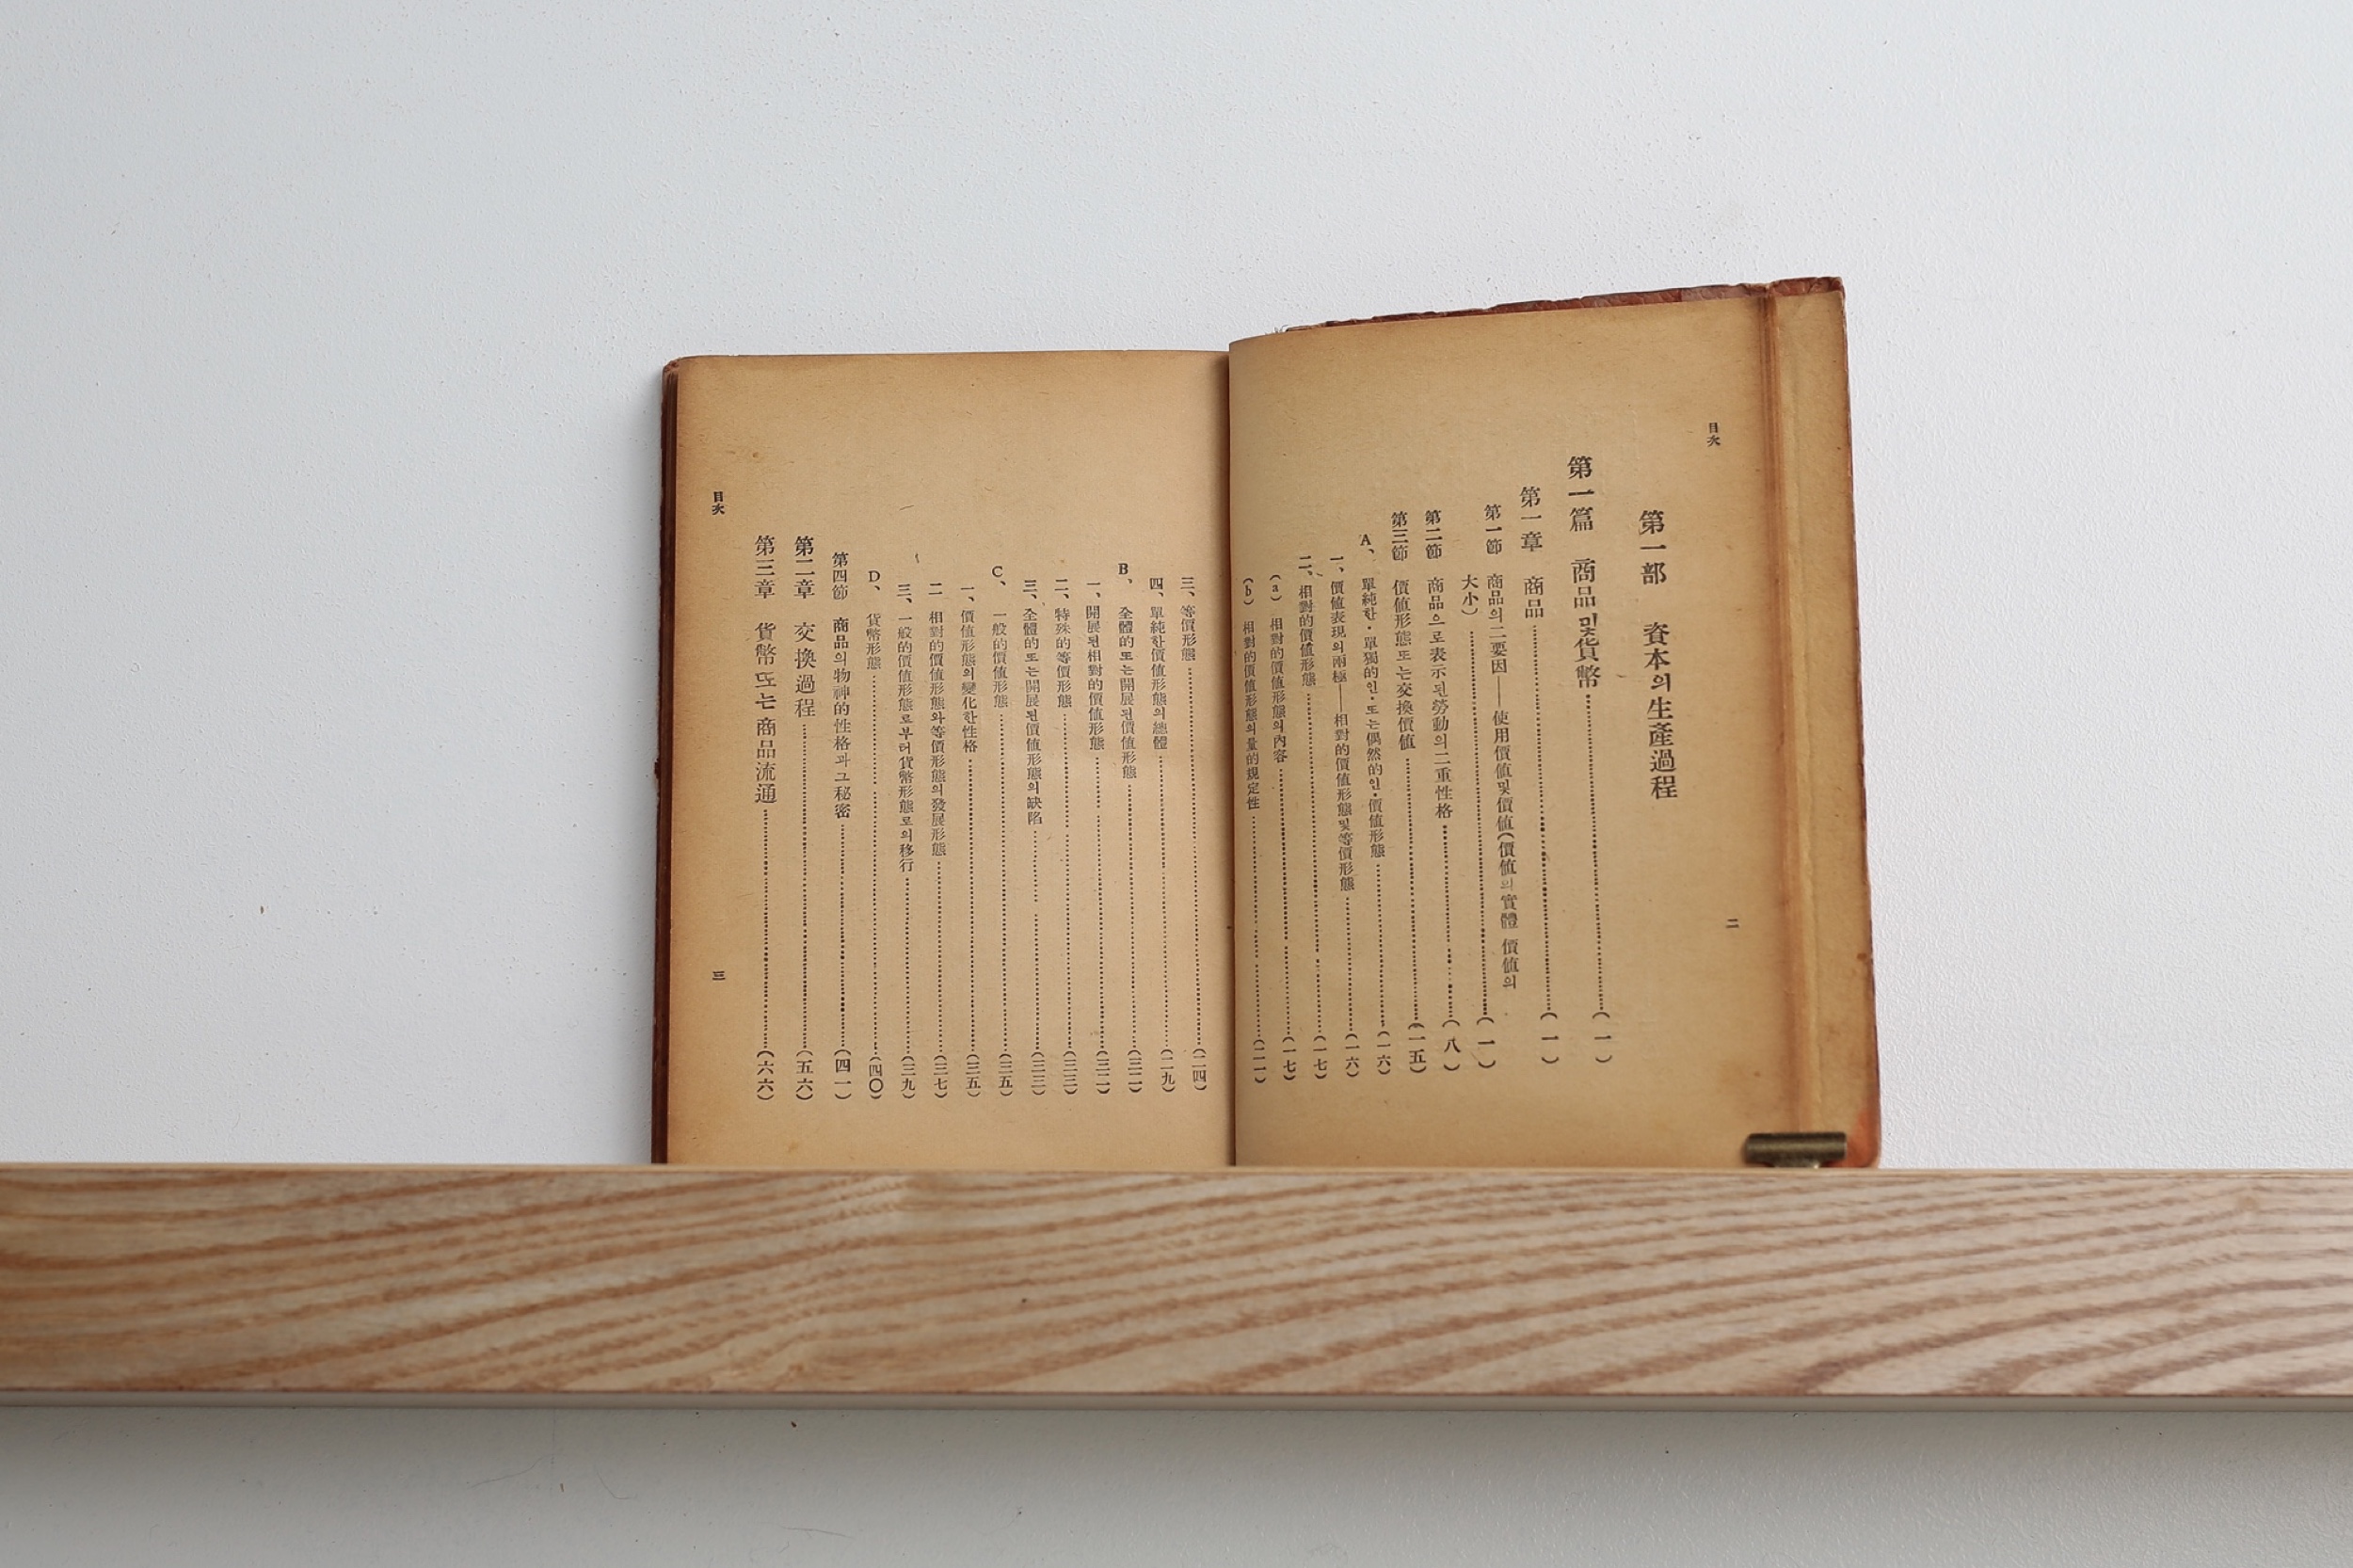 目次
二
第一部 資本의生產過程
第一篇 商品및貨幣(一)
第一章 商品(一)
第一節 商品의二要因——使用價値및價値(價値의實體 價値의
大小)(一)
第二節 商品으로表示된勞動의二重性格(八)
第三節 價値形態또는交換價値(一五)
A、單純한・單獨的인・또는偶然的인・價値形態(一六)
一、價値表現의兩極——相對的價値形態및等價形態(一六)
二、相對的價値形態(一七)
(a) 相對的價値形態의內容(一七)
(b) 相對的價値形態의量的規定性(二一)
三、等價形態(二四)
四、單純한價値形態의總體(二九)
B、全體的또는開展된價値形態(三二)
一、開展된相對的價値形態(三二)
二、特殊的等價形態(三三)
三、全體的또는開展된價値形態의缺陷(三三)
C、一般的價値形態(三五)
一、價値形態의變化한性格(三五)
二 相對的價値形態와等價形態의發展形態(三七)
三、一般的價値形態로부터貨幣形態로의移行(三九)
D、貨幣形態(四〇)
第四節 商品의物神的性格과그秘密(四一)
第二章 交換過程(五六)
第三章 貨幣또는商品流通(六六)
目次
三